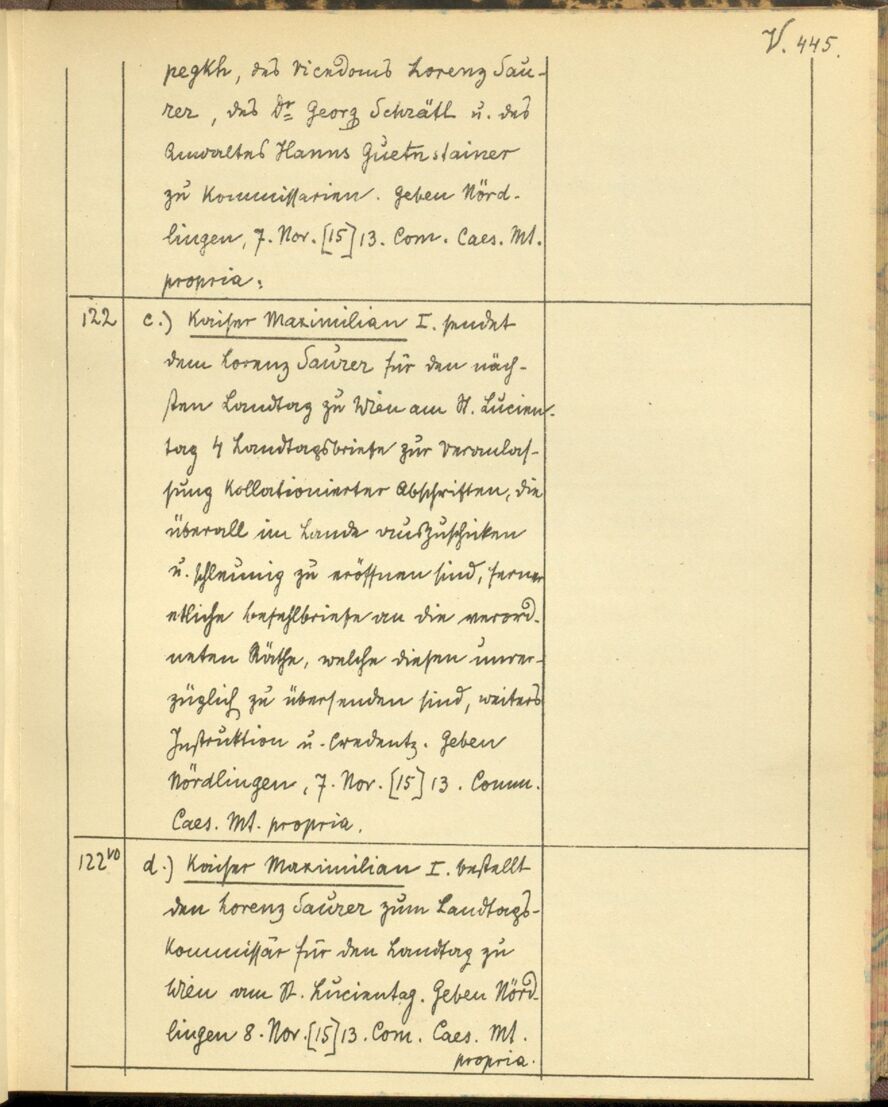 V. 445.
pegkh, des Vicedoms Lorenz Sau-
rer, des Dr Georg Schrätl u. des
Anwaltes Hanns Guetnstainer
zu Kommissarien. Geben Nörd-
lingen, 7. Nov. [15]13. Com. Caes. Mt.
propria.
122 c.) Kaiser Maximilian I. sendet
dem Lorenz Saurer für den näch-
sten Landtag zu Wien am St. Lucien-
tag 4 Landtagsbriefe zur Veranlas-
sung kollationierter Abschriften, die
überall im Lande auszuschicken
u. schleunig zu eröffnen sind, ferner
etliche Befehlbriefe an die verord-
neten Räthe, welche diesen unver-
züglich zu übersenden sind, weiters
Instruktion u. Credentz. Geben
Nördlingen, 7. Nov. [15]13. Comm.
Caes. Mt. propria.
122vo d.) Kaiser Maximilian I. bestellt
den Lorenz Saurer zum Landtags-
kommissär für den Landtag zu
Wien am St. Lucientag. Geben Nörd-
lingen 8. Nov. [15]13. Com. Caes. Mt.
propria.